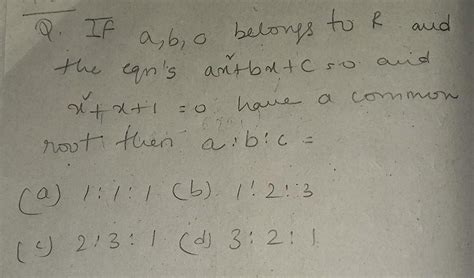 Q. If a, b, o belongs to R and
the eqn's ax²+bx+c=0 and
x²+x+1=0 have a common
root then a:b:c=
(a) 1:1:1 (b) 1:2:3
(c) 2:3:1 (d) 3:2:1